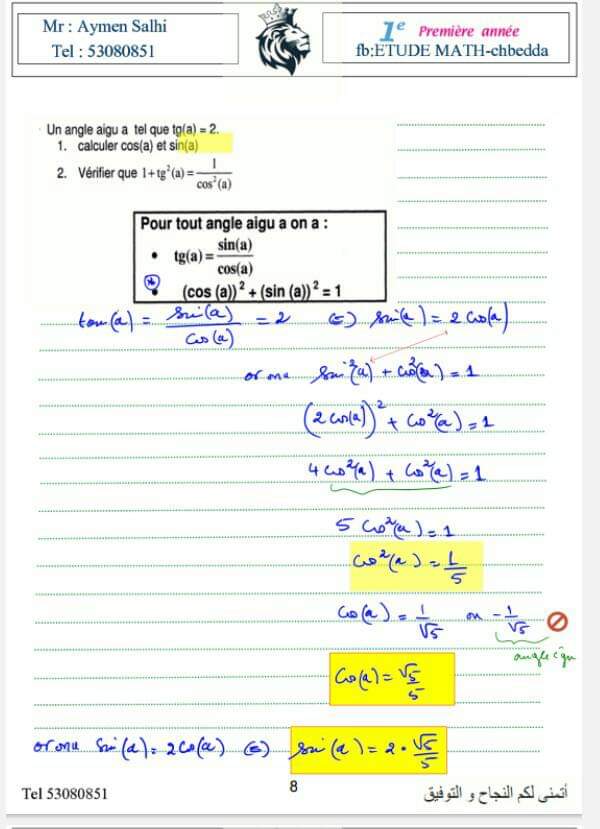 Mr : Aymen Salhi
Tel : 53080851
1e Première année
fb:ETUDE MATH-chbedda
Un angle aigu a tel que tg(a) = 2.
1. calculer cos(a) et sin(a)
2. Vérifier que 1+tg²(a)=1/cos²(a)
Pour tout angle aigu a on a :
• tg(a)=sin(a)/cos(a)
• (cos (a))² + (sin (a))² = 1
tan(a) = sin(a)/cos(a) = 2 (=) sin(a) = 2 cos(a)
or on a sin²(a) + cos²(a) = 1
(2 cos(a))² + cos²(a) = 1
4 cos²(a) + cos²(a) = 1
5 cos²(a) = 1
cos²(a) = 1/5
cos(a) = 1/√5 ou -1/√5
angle aigu
cos(a) = √5/5
or on a sin(a) = 2 cos(a) (=) sin(a) = 2 · √5/5
Tel 53080851
8
أتمنى لكم النجاح و التوفيق